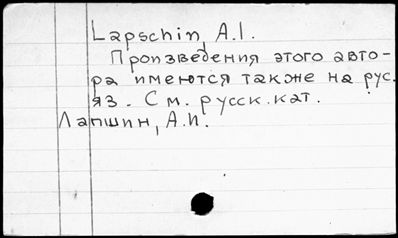 Lapschin, A.I.
Произведения этого авто-
ра имеются также на рус.
яз. См. русск. кат.
Лапшин, А.И.